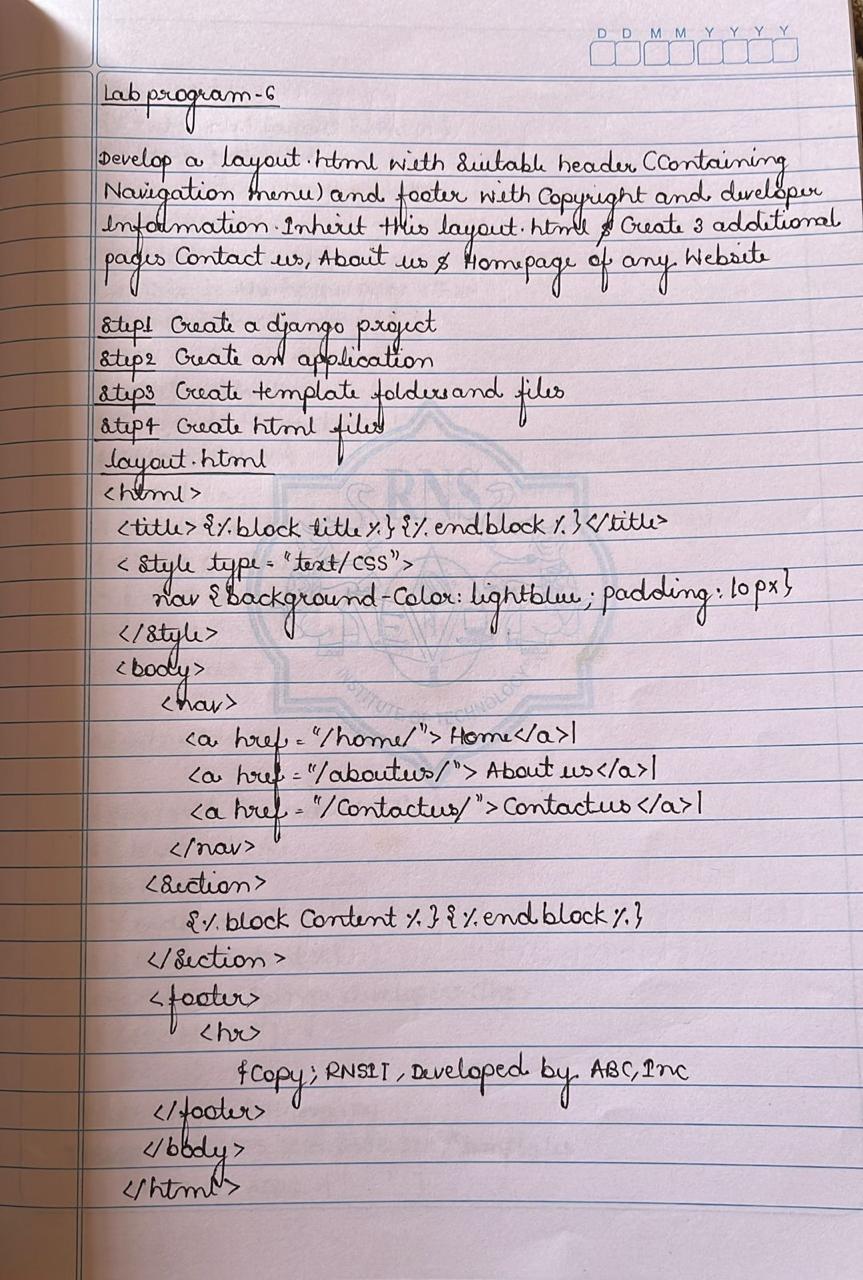 D D M M Y Y Y Y
Lab program-6
Develop a layout.html with Suitable header (Containing
Navigation menu) and footer with Copyright and developer
Information. Inherit this layout.html & Create 3 additional
pages Contact us, About us & Homepage of any Website
Step1 Create a django project
Step2 Create an application
Step3 Create template folders and files
Step4 Create html files
layout.html
<html>
<title>{%block title%}{%endblock%}</title>
<style type="text/CSS">
nav {background-Color: lightblue; padding: 10px}
</style>
<body>
<nav>
<a href="/home/">Home</a>|
<a href="/aboutus/">About us</a>|
<a href="/Contactus/">Contactus</a>|
</nav>
<Section>
{%block Content%}{%endblock%}
</Section>
<footer>
<hr>
&Copy; RNSIT, Developed by ABC, Inc
</footer>
</body>
</html>
RNS
INSTITUTE OF TECHNOLOGY